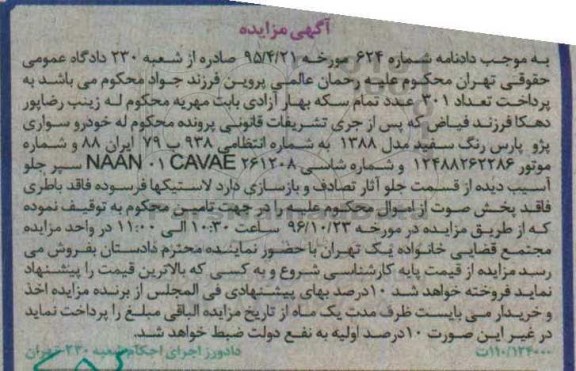 آگهی مزایده
به موجب دادنامه شماره ۶۲۴ مورخه ۹۵/۴/۲۱ صادره از شعبه ۲۳۰ دادگاه عمومی
حقوقی تهران محکوم علیه رحمان عالمی پروین فرزند جواد محکوم می باشد به
پرداخت تعداد ۳۰۱ عدد تمام سکه بهار آزادی بابت مهریه محکوم له زینب رضاپور
دهکا فرزند فیاض که پس از جری تشریفات قانونی پرونده محکوم له خودرو سواری
پژو پارس رنگ سفید مدل ۱۳۸۸ به شماره انتظامی ۹۳۸ ب ۷۹ ایران ۸۸ و شماره
موتور ۱۲۴۸۸۲۶۲۲۸۶ و شماره شاسی NAAN ۰۱ CAVAE ۲۶۱۲۰۸ سپر جلو
آسیب دیده از قسمت جلو آثار تصادف و بازسازی دارد لاستیکها فرسوده فاقد باطری
فاقد پخش صوت از اموال محکوم علیه را در جهت تامین محکوم به توقیف نموده
که از طریق مزایده در مورخه ۹۶/۱۰/۲۳ ساعت ۱۰:۳۰ الی ۱۱:۰۰ در واحد مزایده
مجتمع قضایی خانواده یک تهران با حضور نماینده محترم دادستان بفروش می
رسد مزایده از قیمت پایه کارشناسی شروع و به کسی که بالاترین قیمت را پیشنهاد
نماید فروخته خواهد شد ۱۰درصد بهای پیشنهادی فی المجلس از برنده مزایده اخذ
و خریدار می بایست ظرف مدت یک ماه از تاریخ مزایده الباقی مبلغ را پرداخت نماید
در غیر این صورت ۱۰درصد اولیه به نفع دولت ضبط خواهد شد.
۱۱۰/۱۲۴۰۰۰ت دادورز اجرای احکام شعبه ۲۳۰ تهران